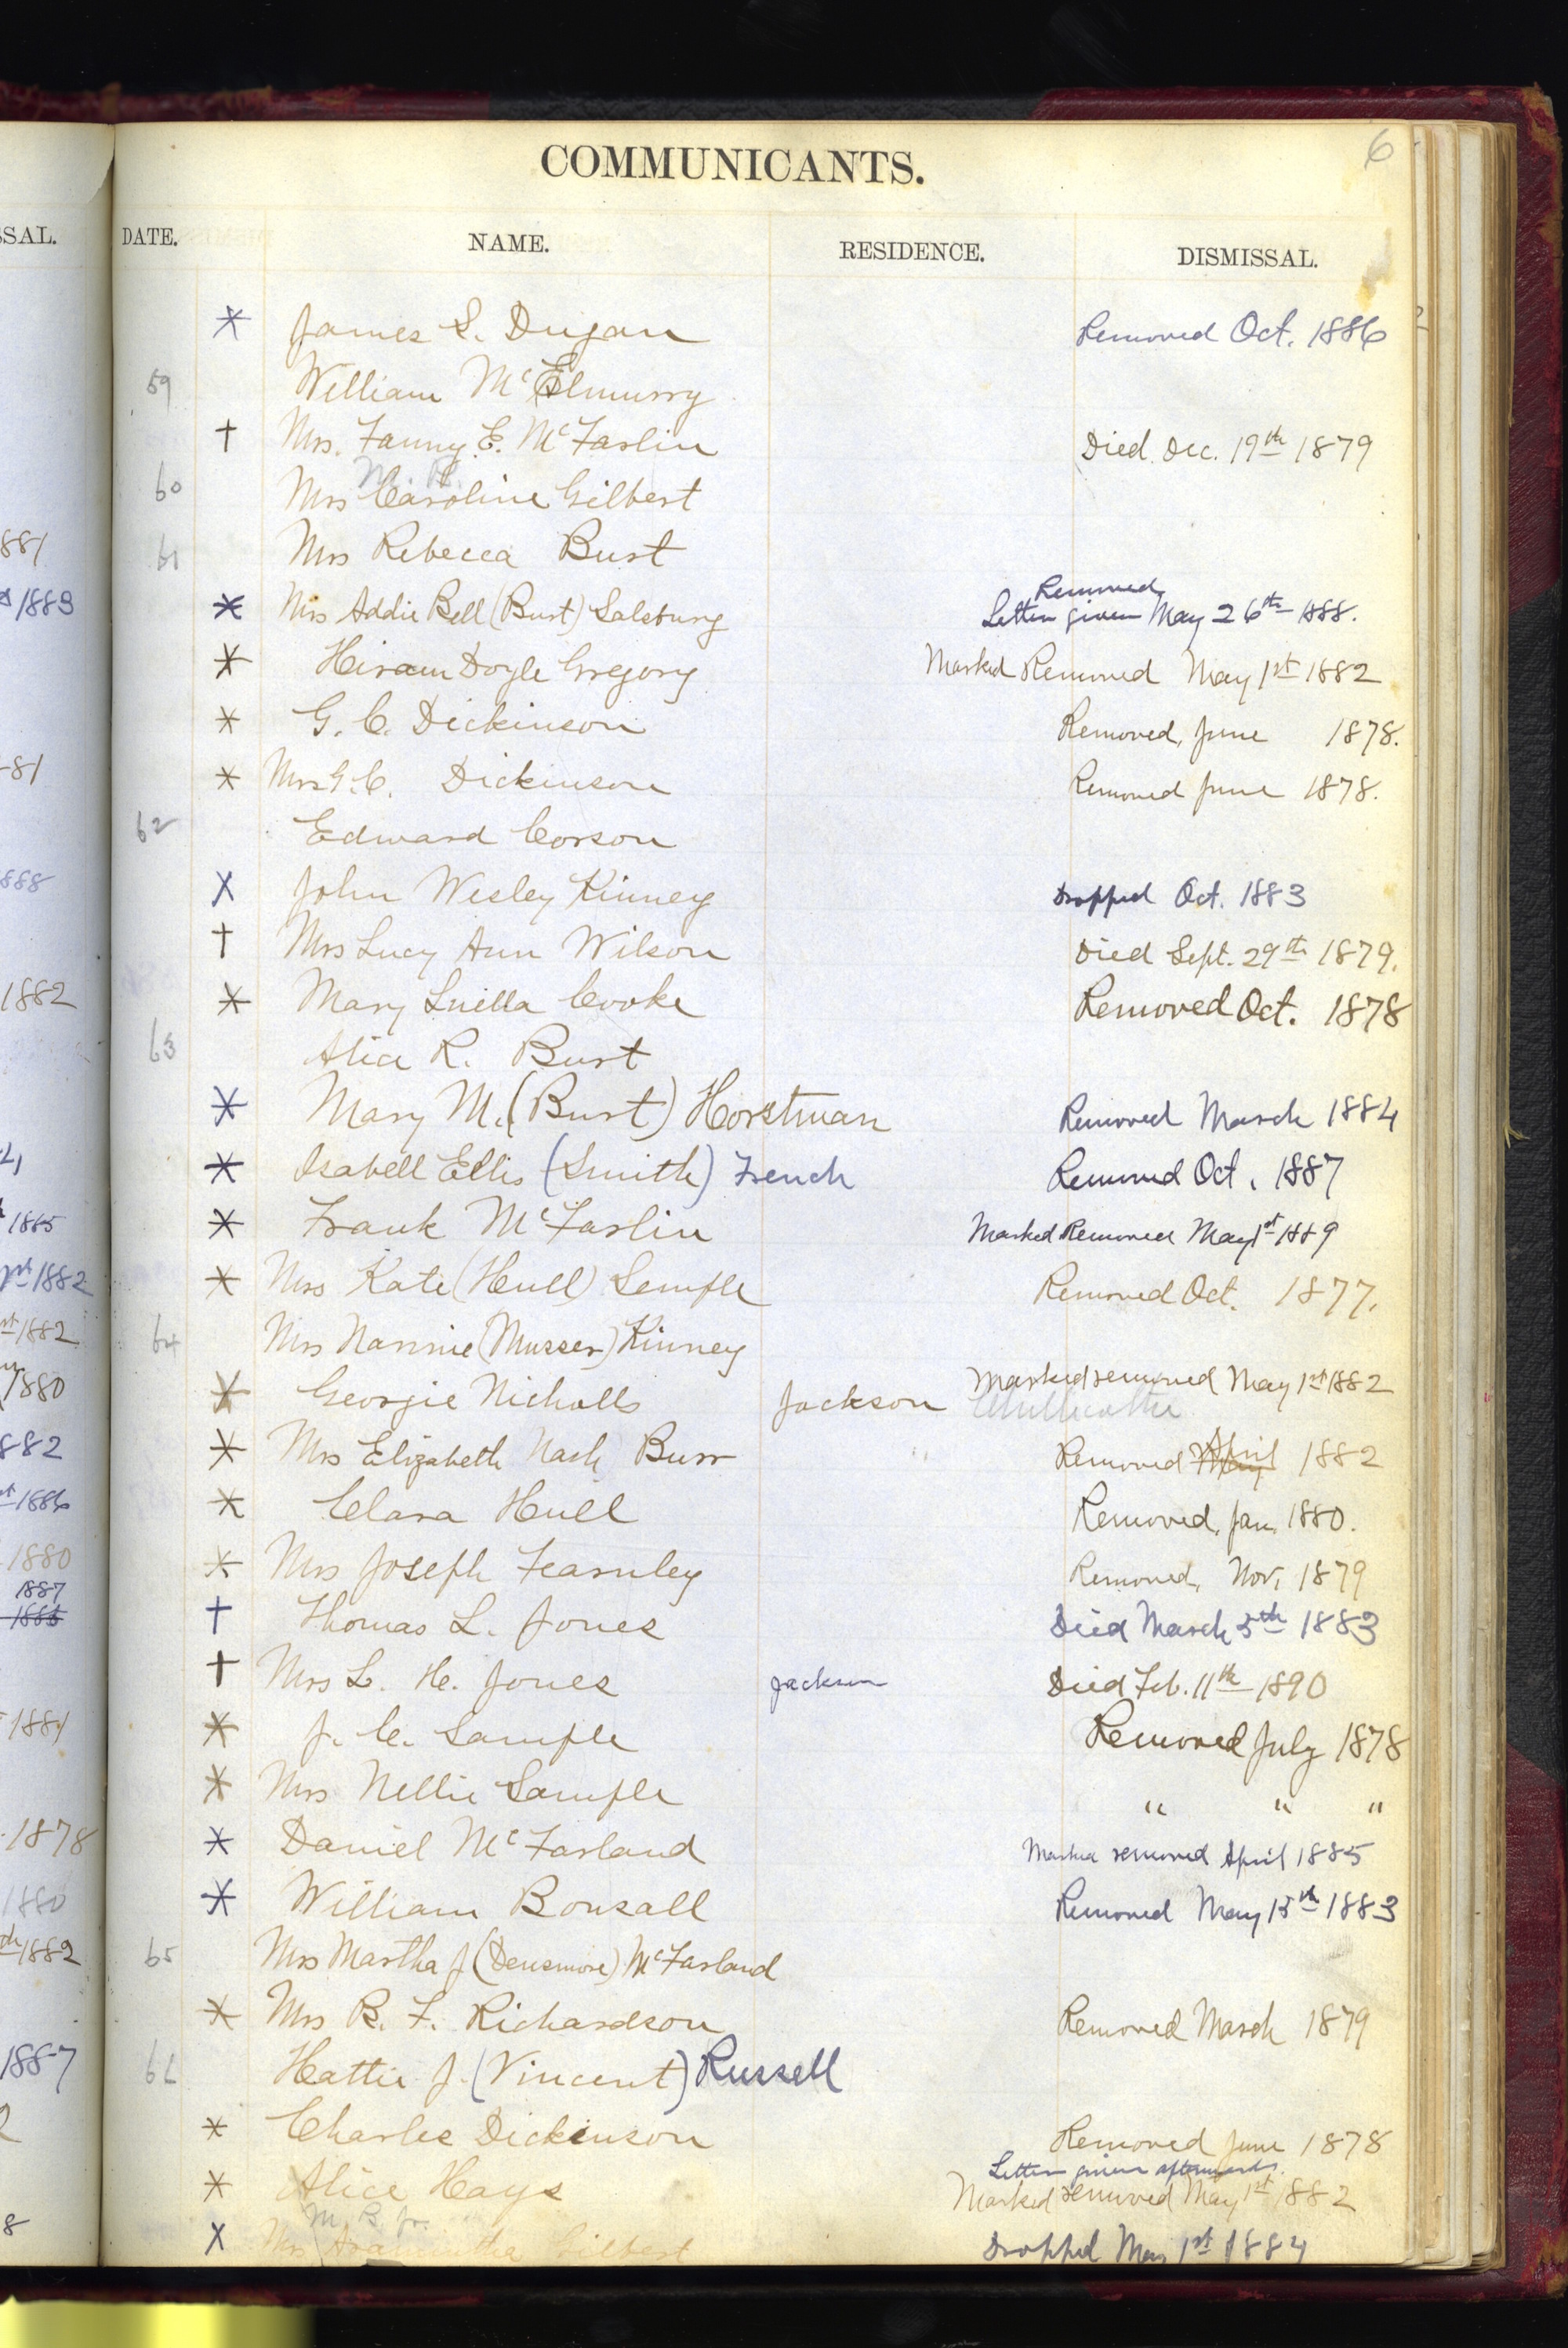 6
COMMUNICANTS.
SSAL. DATE. NAME. RESIDENCE. DISMISSAL.
* James S. Dugan Removed Oct. 1886
59 William McElmurry
† Mrs. Fanny E. McFarlin Died Dec. 19th 1879
M. R.
60 Mrs Caroline Gilbert
61 Mrs Rebecca Burt
881
Removed
1883 * Mrs Addie Bell (Burt) Salsbury Letter given May 26th 1888.
* Hiram Doyle Gregory Marked Removed May 1st 1882
* G. C. Dickinson Removed, June 1878.
-81 * Mrs G. C. Dickinson Removed June 1878.
62 Edward Corson
888 X John Wesley Kinney Dropped Oct. 1883
† Mrs Lucy Ann Wilson Died Sept. 29th 1879.
1882 * Mary Luella Cooke Removed Oct. 1878
63 Alice R. Burt
* Mary M. (Burt) Horstman Removed March 1884
* Isabell Ellis (Smith) French Removed Oct. 1887
1885 * Frank McFarlin Marked Removed May 1st 1889
1st 1882 * Mrs Kate (Hull) Semple Removed Oct. 1877.
st 1882 64 Mrs Nannie (Musser) Kinney
1880 * Georgie Nicholls Jackson Marked removed May 1st 1882
Chillicothe
882 * Mrs Elizabeth Nash Burr Removed May April 1882
st 1886 * Clara Hull Removed, Jan. 1880.
1880 * Mrs Joseph Fearnley Removed, Nov. 1879
1887
1885 † Thomas L. Jones Died March 5th 1883
† Mrs L. H. Jones Jackson Died Feb. 11th 1890
1884 * J. C. Sample Removed July 1878
* Mrs Nellie Sample " " "
1878 * Daniel McFarland Marked removed April 1885
1880 * William Bonsall Removed May 15th 1883
th 1882 65 Mrs Martha J (Densmore) McFarland
* Mrs B. F. Richardson Removed March 1879
1887 66 Hattie J. (Vincent) Russell
2 * Charles Dickinson Removed June 1878
Letter given afterwards.
* Alice Hays Marked removed May 1st 1882
M. B. Jr.
8 X Mrs Gilbert Dropped May 1st 1884